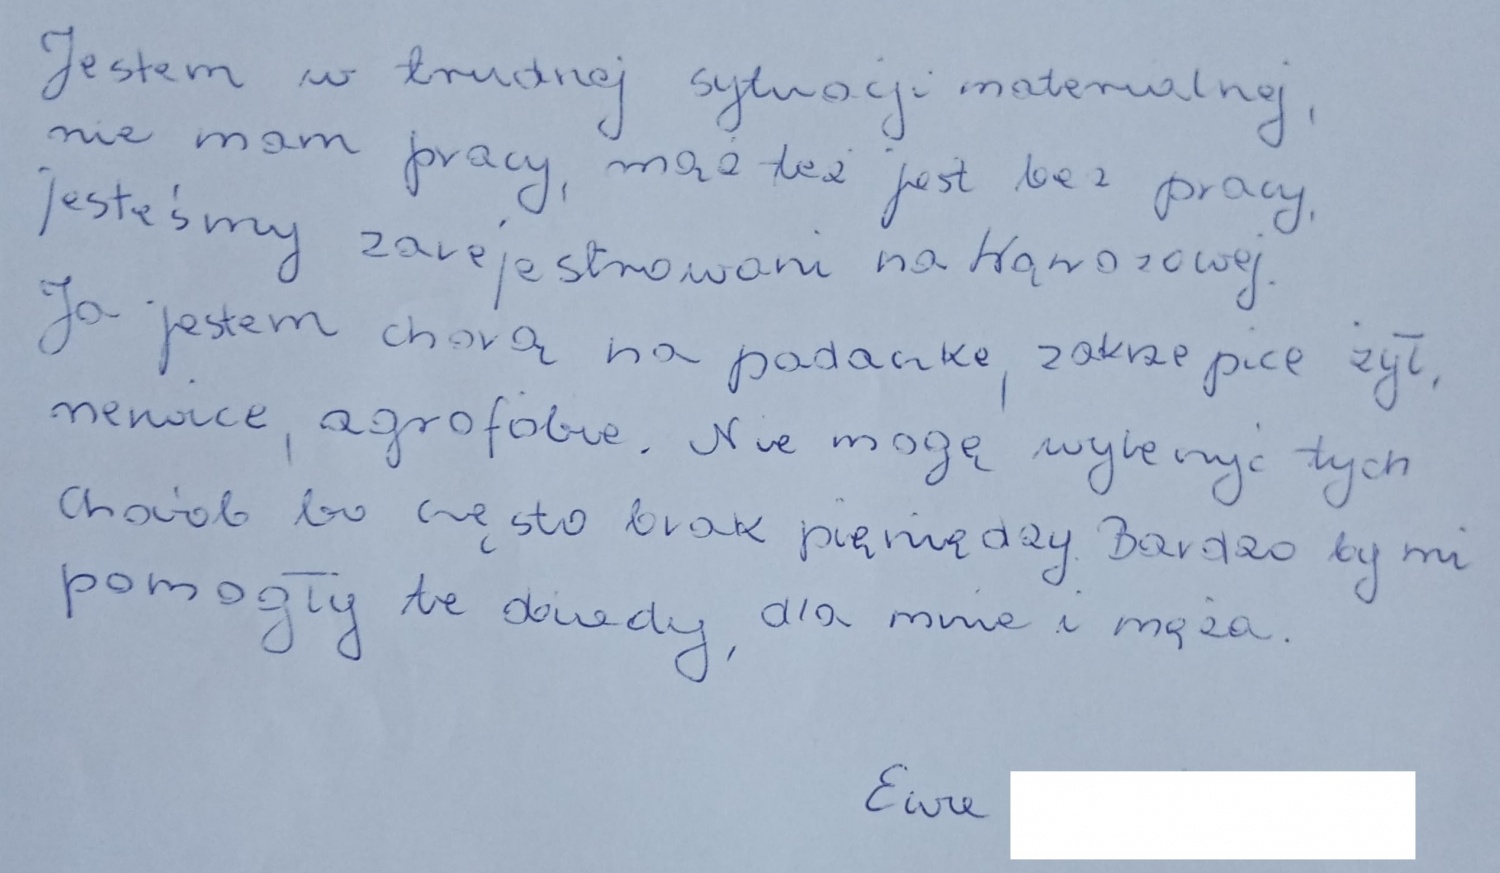 Jestem w trudnej sytuacji materialnej,
nie mam pracy, mąż też jest bez pracy,
jesteśmy zarejestrowani na Wąwozowej.
Ja jestem chorą na padaczkę, zakrzepicę żył,
nerwicę, agrofobię. Nie mogę wyleczyć tych
chorób bo często brak pieniędzy. Bardzo by mi
pomogły te obiedy, dla mnie i męża.